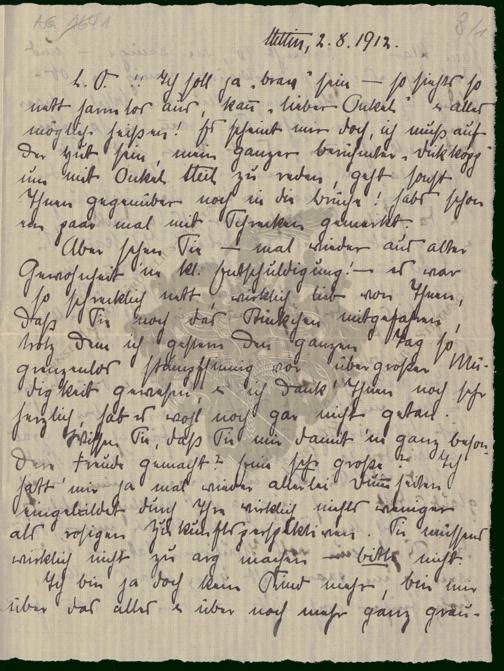 AG 1641
8/1
Stettin, 2.8.1912.
L. O. !! Ich soll ja „brav" sein – so sieht's so
nett harmlos aus, kann „lieber Onkel" u alles
mögliche heißen! Es scheint mir doch, ich muß auf
der Hut sein, mein ganzer berühmter „Dickkopp"
um mit Onkel Steil zu reden, geht sonst
Ihnen gegenüber noch in die Brüche! Hab's schon
ein paar mal mit Schrecken gemerkt.
Aber sehen Sie – mal wieder aus alter
Gewohnheit ne kl. Entschuldigung! – es war
so schrecklich nett, wirklich lieb von Ihnen,
daß Sie noch das Stückchen mitgefahren,
trotz dem ich gestern den ganzen Tag so
grenzenlos stumpfsinnig vor übergroßer Mü-
digkeit gewesen, u ich dank' Ihnen noch sehr
herzlich, hab es wohl noch gar nicht getan.
Wissen Sie, daß Sie mir damit 'ne ganz beson-
dere Freude gemacht? Eine sehr große? Ich
hatt' mir ja mal wieder allerlei Dummheiten
eingebildet durch Ihre wirklich nichts weniger
als rosigen Zukunftsperspektiven. Sie müssens
wirklich nicht zu arg machen – bitte nicht.
Ich bin ja doch kein Kind mehr, bin mir
über das alles u über noch mehr ganz grau-